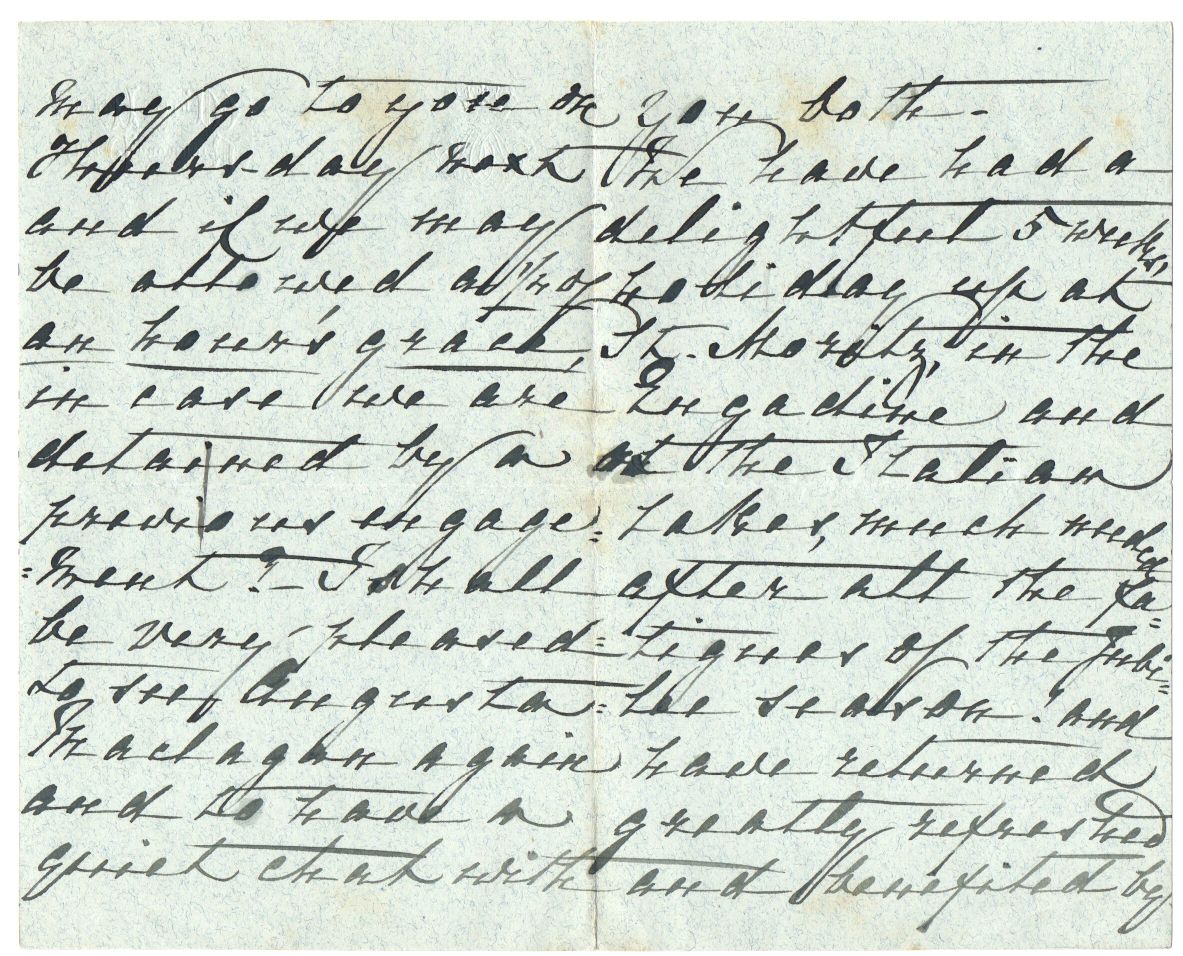 may go to you on
Thursday next
and if we may
be allowed a ¼ of
an hour's grace,
in case we are
detained by a
previous engage=
=ment? – I shall
be very pleased
to see Augusta
Maclagan again
and to have a
quiet chat with
you both –
We have had a
delightful 5 weeks'
holiday up at
St. Moritz, in the
Engadine and
at the Italian
Lakes, much needed
after all the fa=
=tigues of the Jubi=
=lee season! and
have returned
greatly refreshed
and benefited by